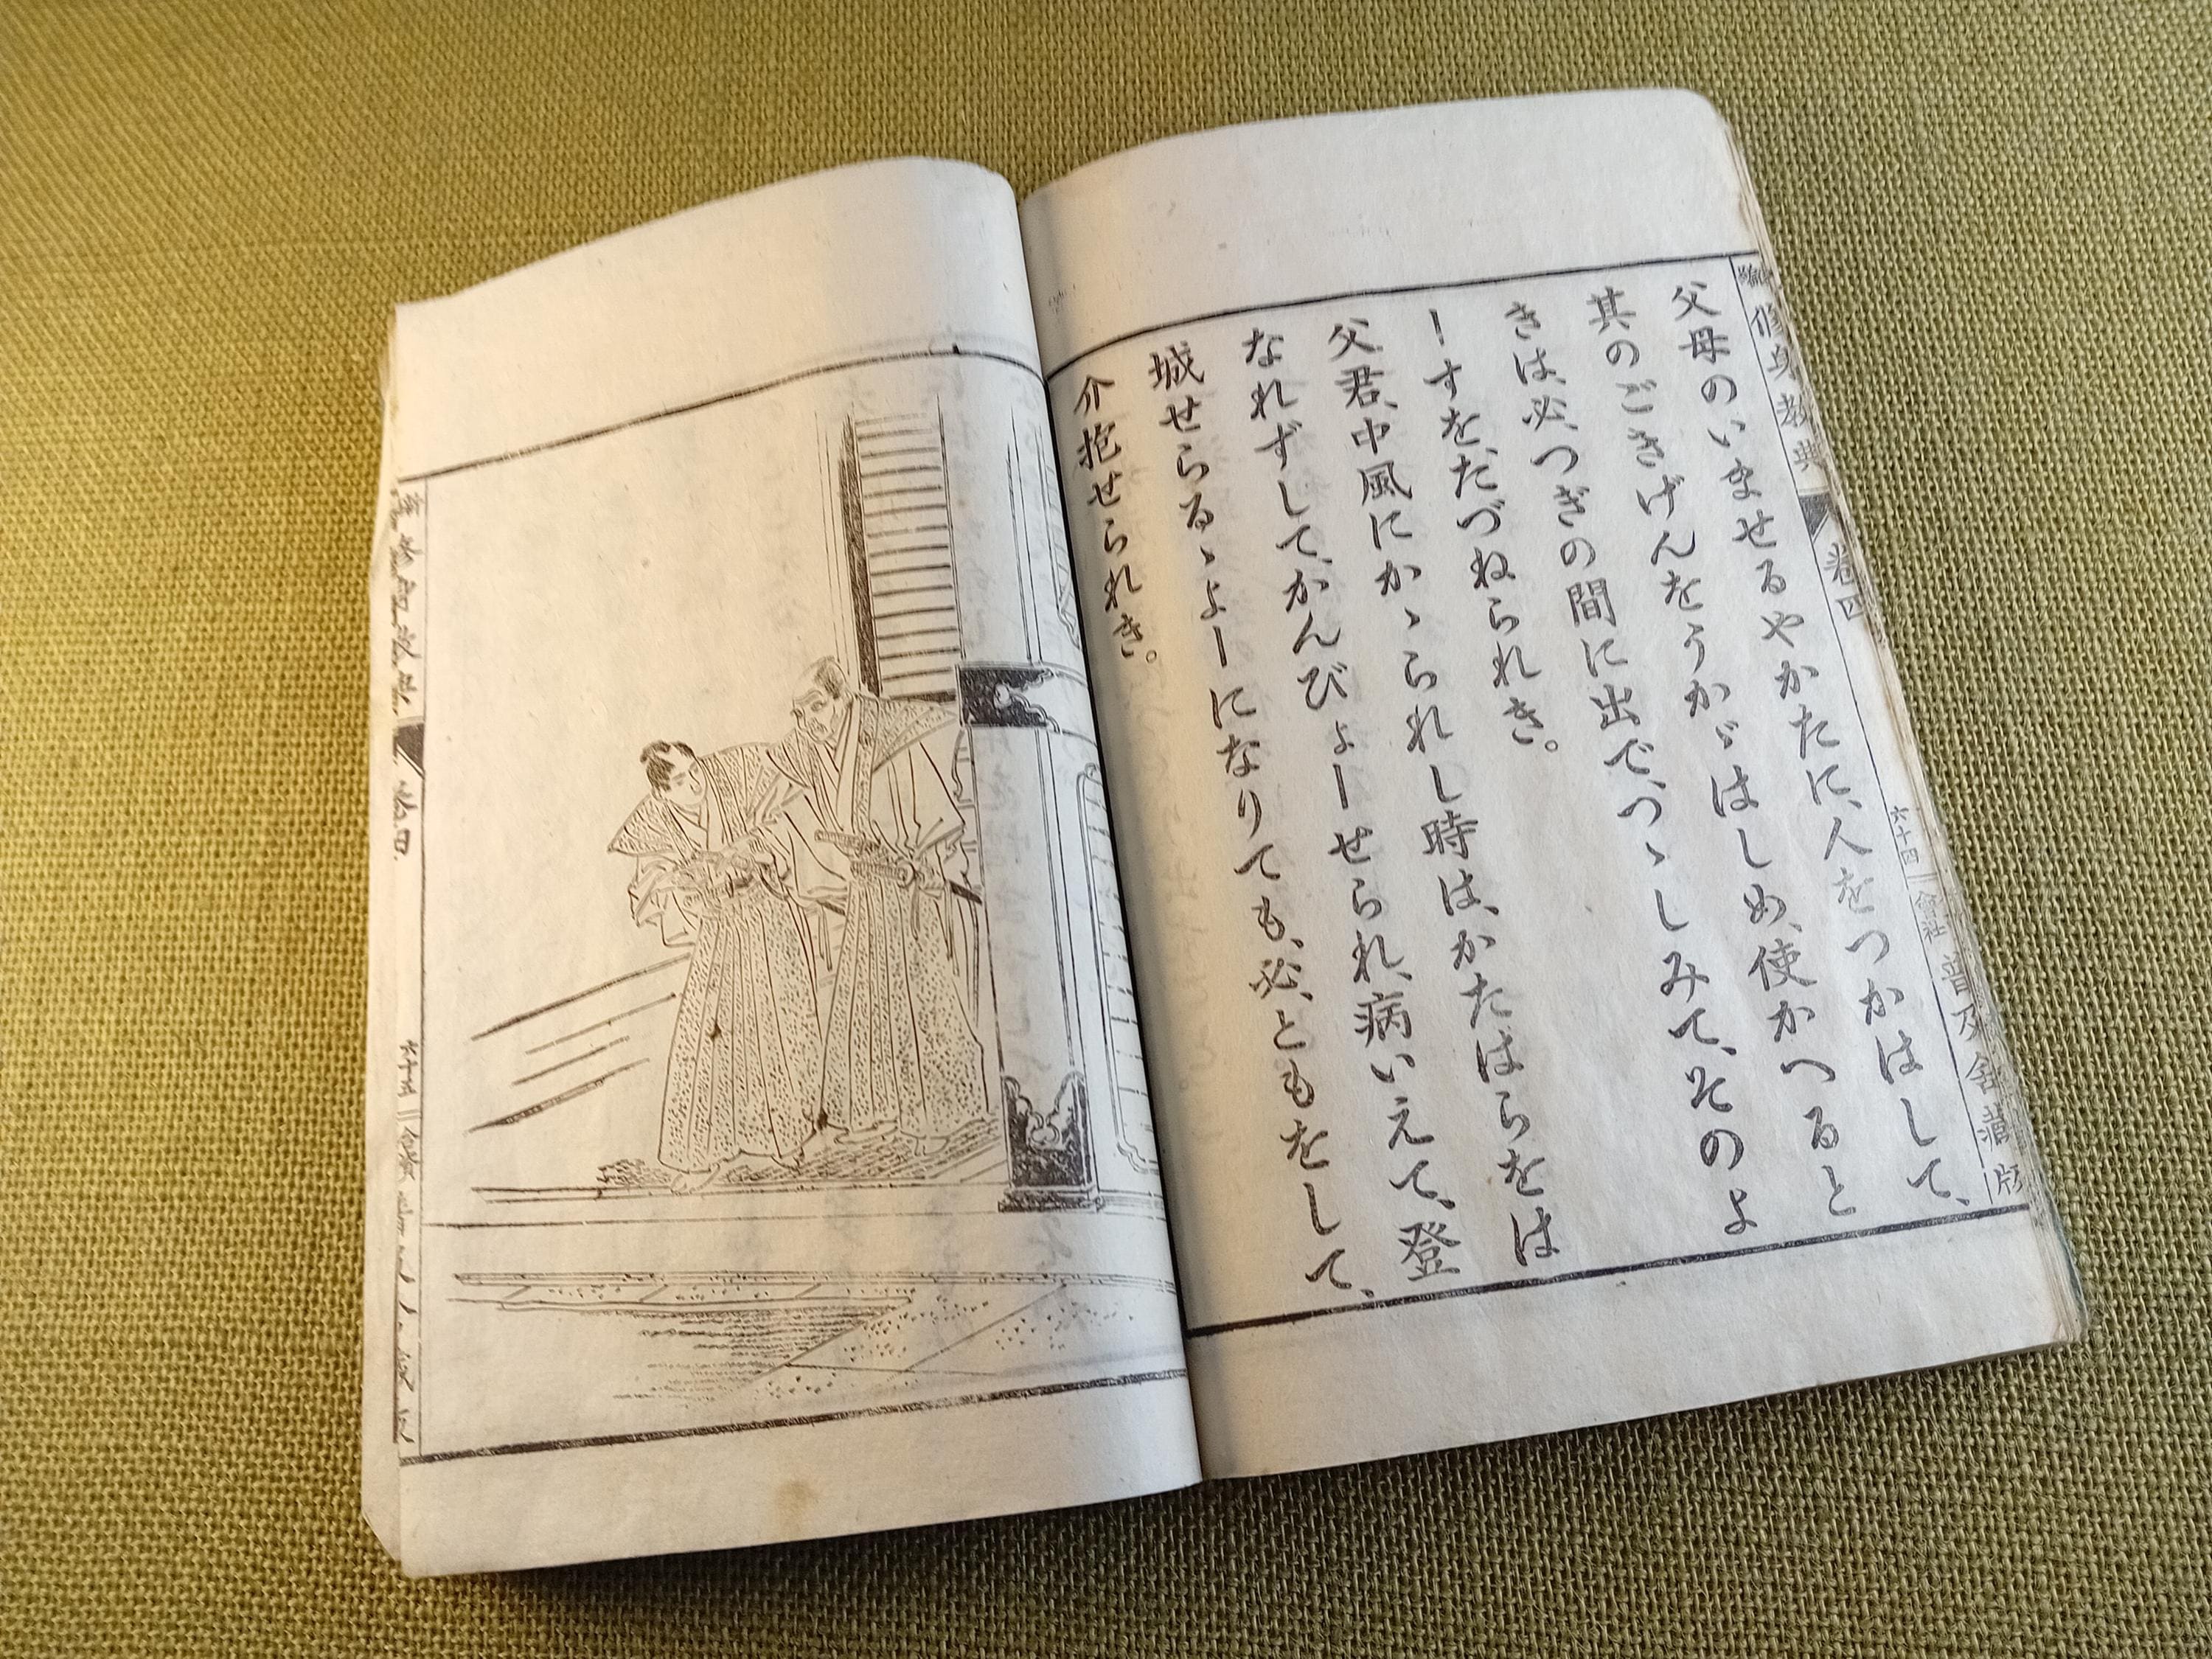 修身教典 卷四 六十四 會社 普及舍藏版
父母のいませるやかたに、人をつかはして、
其のごきげんをうかゞはしめ、使かへると
きは、必、つぎの間に出で、つゝしみて、そのよ
ーすを、たづねられき。
父君、中風にかゝられし時は、かたはらをは
なれずして、かんびょーせられ、病いえて、登
城せらるゝよーになりても、必、ともをして、
介抱せられき。
六十五